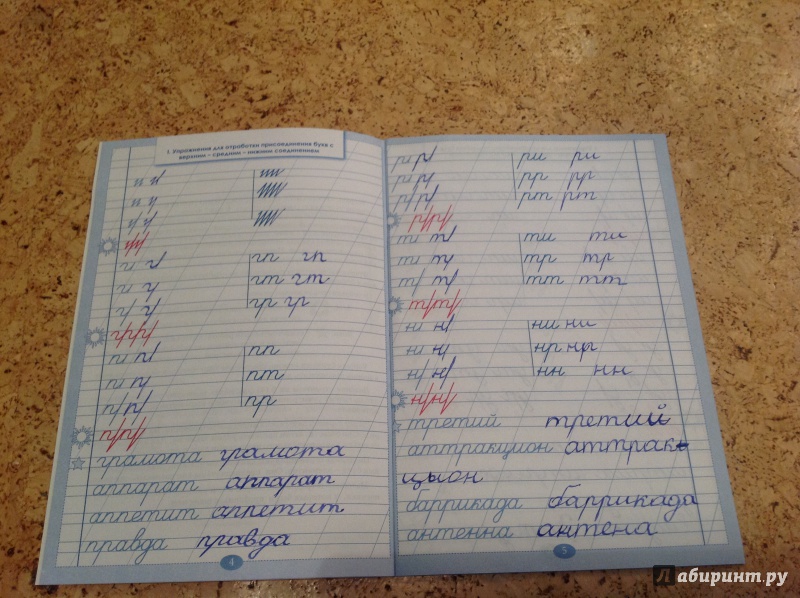 1. Упражнения для отработки присоединения букв с
верхним – средним – нижним соединением
гп гп
гт гт
гр гр
пп
пт
пр
грамота грамота
аппарат аппарат
аппетит аппетит
правда правда
4
ри ри
рр рр
рт рт
ти ти
тр тр
тт тт
ни ни
нр нр
нн нн
третий третий
аттракцион аттрак-
цыон
баррикада баррикада
антенна антена
5
Лабиринт.ру